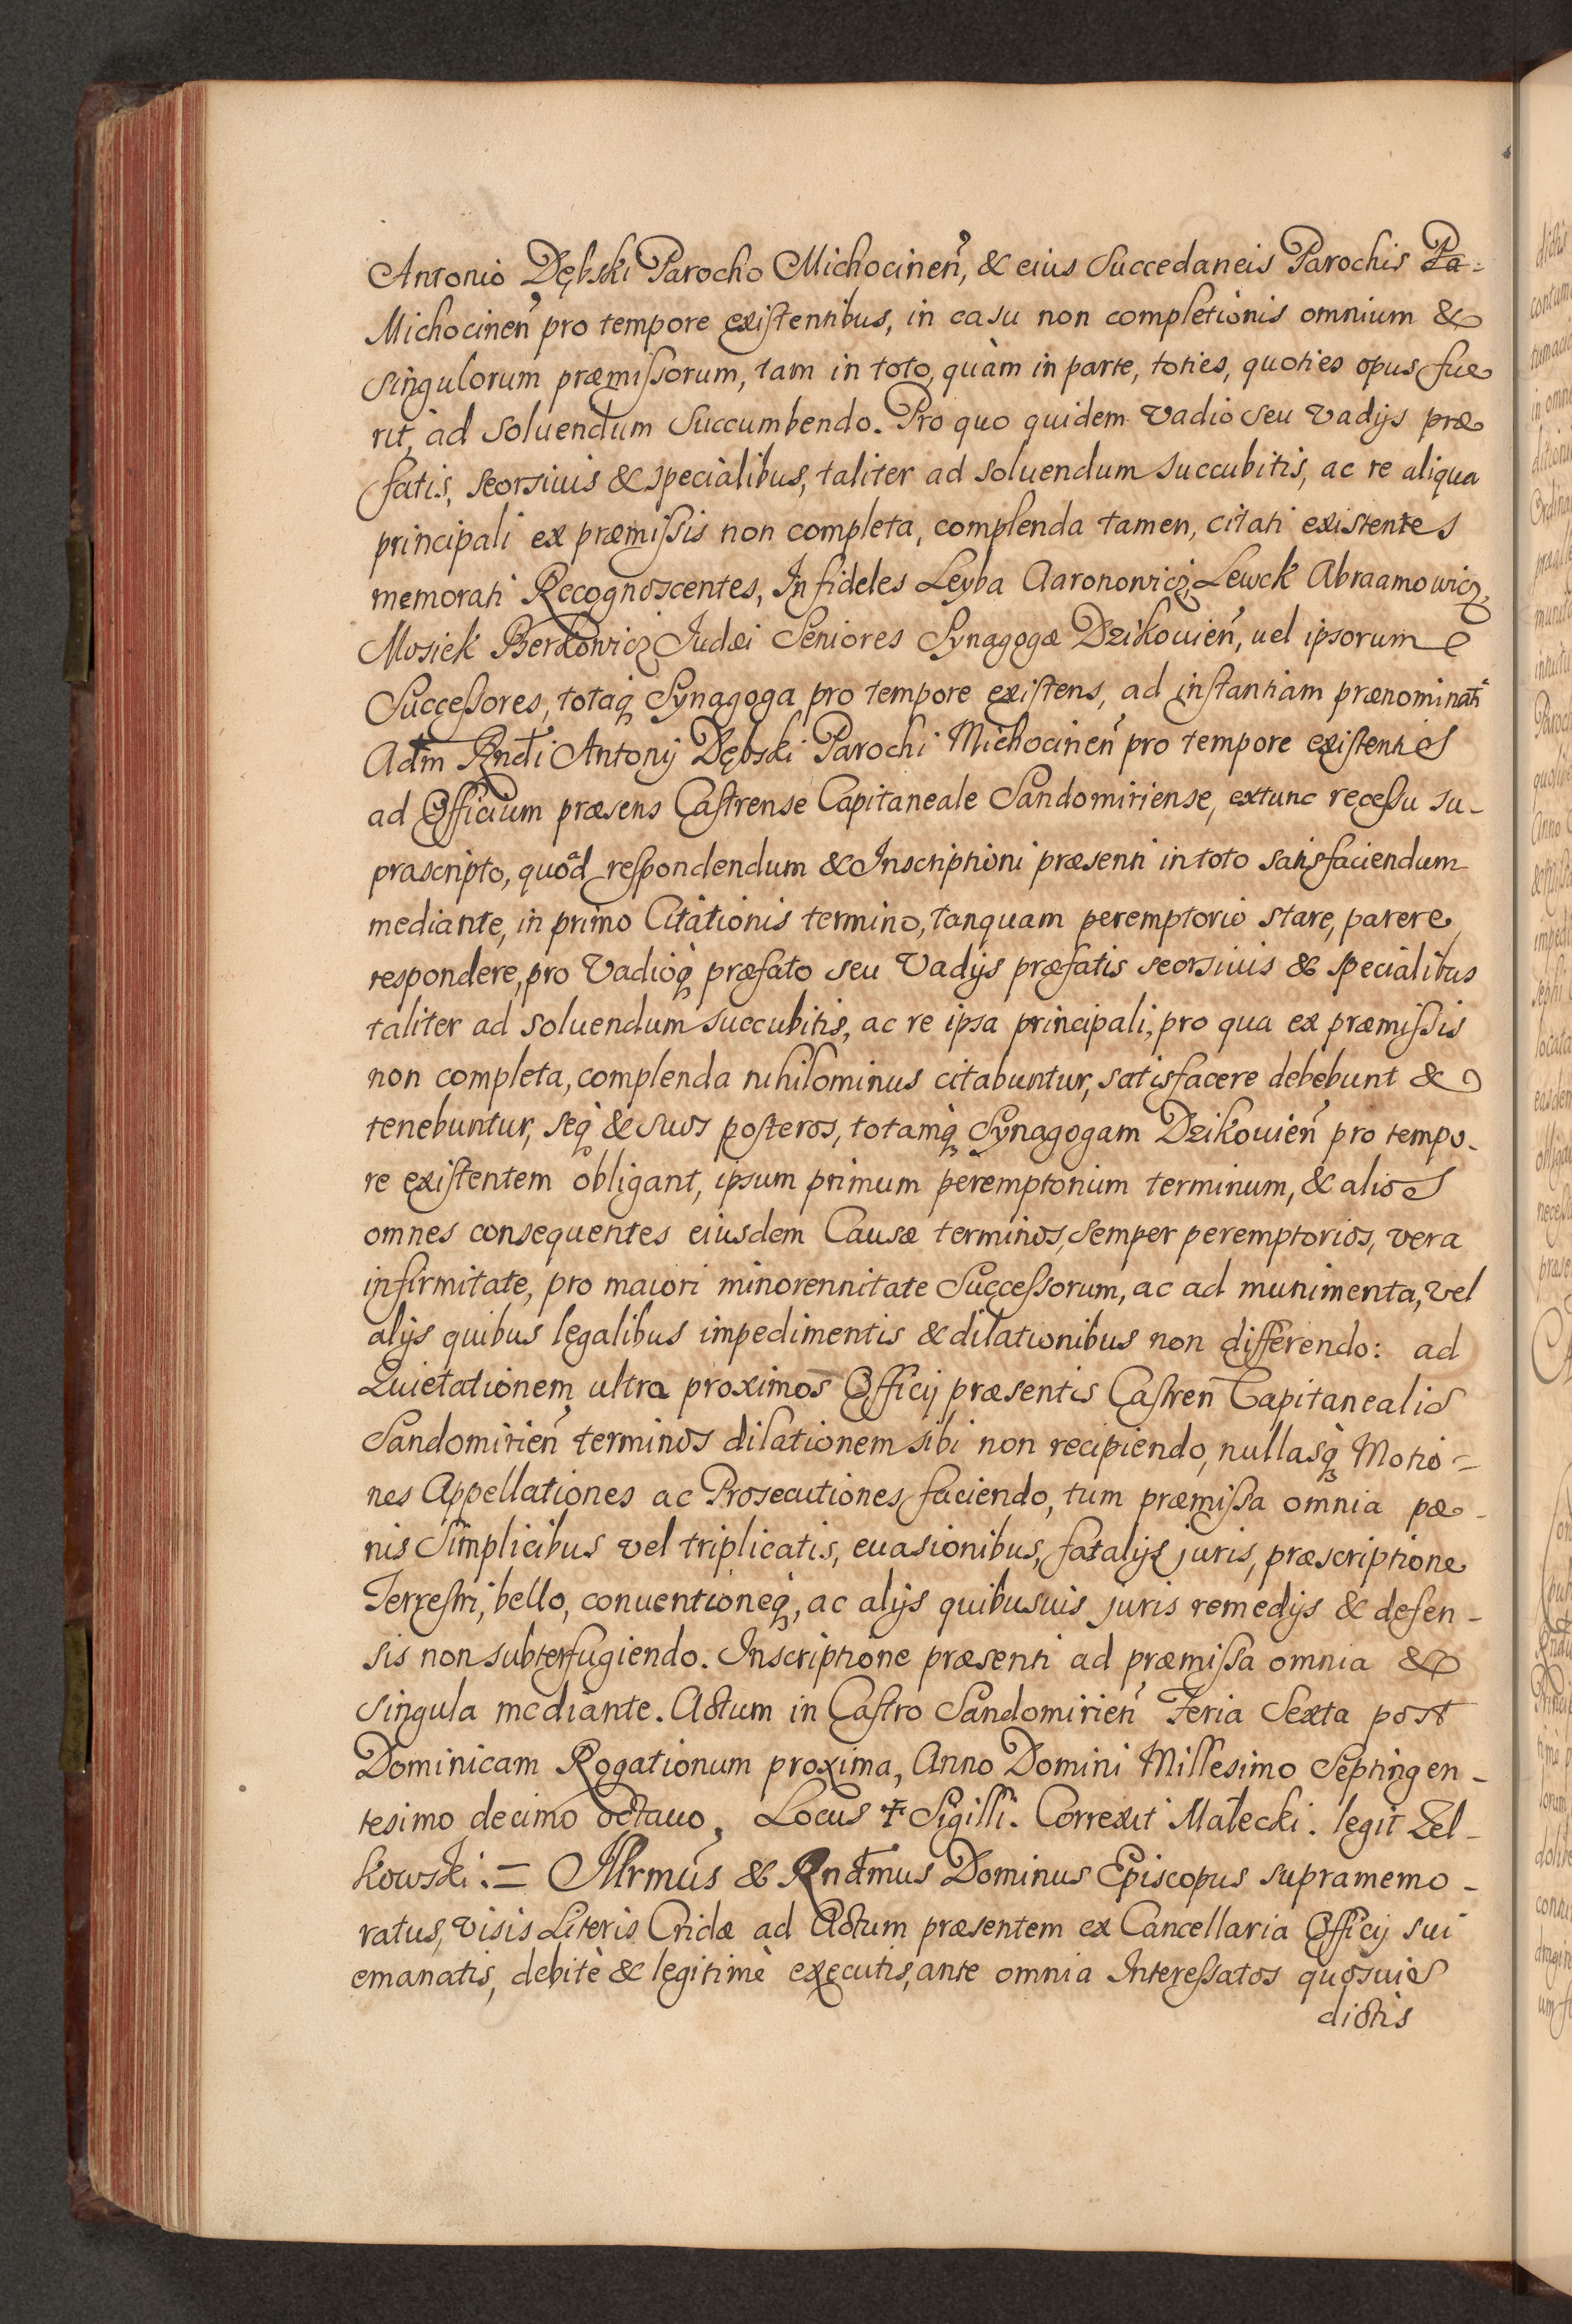 Antonio Dębski Parocho Michocinen̄, & eius Succedaneis Parochis Pa=
Michocinen̄ pro tempore existentibus, in casu non completionis omnium &
singulorum præmissorum, tam in toto, quàm in parte, toties, quoties opus fue
rit, ad soluendum Succumbendo. Pro quo quidem Vadio seu Vadijs præ
fatis, seorsiuis & specialibus, taliter ad soluendum succubitis, ac re aliqua
principali ex præmissis non completa, complenda tamen, citati existentes
memorati Recognoscentes, Infideles Leyba Aaronowicz, Lewek Abraamowicz,
Mosiek Berkowicz Judæi Seniores Synagogæ Dzikouien̄, uel ipsorum
Successores, totaq̣ Synagoga pro tempore existens, ad instantiam prænominati
Adm̄ Rnd̄i Antonij Dębski Parochi Michocinen̄ pro tempore existentis
ad Officium præsens Castrense Capitaneale Sandomiriense, extunc recessu su-
prascripto, quoad respondendum & Inscriptioni præsenti in toto satisfaciendum
mediante, in primo Citationis termino, tanquam peremptorio stare, parere
respondere, pro Vadioq̣ præfato seu Vadijs præfatis seorsiuis & specialibus
taliter ad soluendum succubitis, ac re ipsa principali, pro qua ex præmissis
non completa, complenda nihilominus citabuntur, satisfacere debebunt &
tenebuntur, seq̣ & suos posteros, totamq̣ Synagogam Dzikouien̄ pro tempo-
re existentem obligant, ipsum primum peremptorium terminum, & alios
omnes consequentes eiusdem Causæ terminos, semper peremptorios, vera
infirmitate, pro maiori minorennitate Successorum, ac ad munimenta, vel
alijs quibus legalibus impedimentis & dilationibus non differendo: ad
Quietationem ultra proximos Officij præsentis Castren̄ Capitanealis
Sandomirien̄ terminos dilationem sibi non recipiendo, nullasq̣ Motio=
nes Appellationes ac Prosecutiones faciendo, tum præmissa omnia pæ-
nis simplicibus vel triplicatis, euasionibus, fatalijs juris, præscriptione
Terrestri, bello, conuentioneq̣, ac alijs quibusuis juris remedijs & defen-
sis non subterfugiendo. Inscriptione præsenti ad præmissa omnia &
singula mediante. Actum in Castro Sandomirien̄ Feria Sexta post
Dominicam Rogationum proxima, Anno Domini Millesimo Septingen-
tesimo decimo octauo. Locus ✝ Sigilli. Correxit Małecki. legit Zel-
kowski. = Illrmus & Rndmus Dominus Episcopus supramemo-
ratus, visis Literis Cridæ ad Actum præsentem ex Cancellaria Officij sui
emanatis, debitè & legitimè executis, ante omnia Interessatos quosuis
dictis